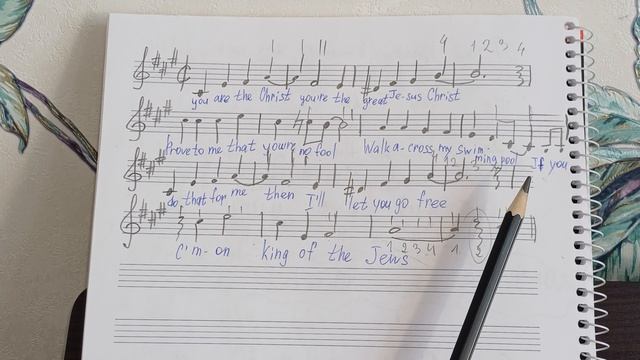 1 1 11 4 1 2 3 4
you are the Christ you're the great Je-sus Christ
Prove to me that you're no fool Walk a-cross my swim-ming pool If you
do that for me then I'll let you go free
C'm-on king of the Jews 1 2 3 4 1 2